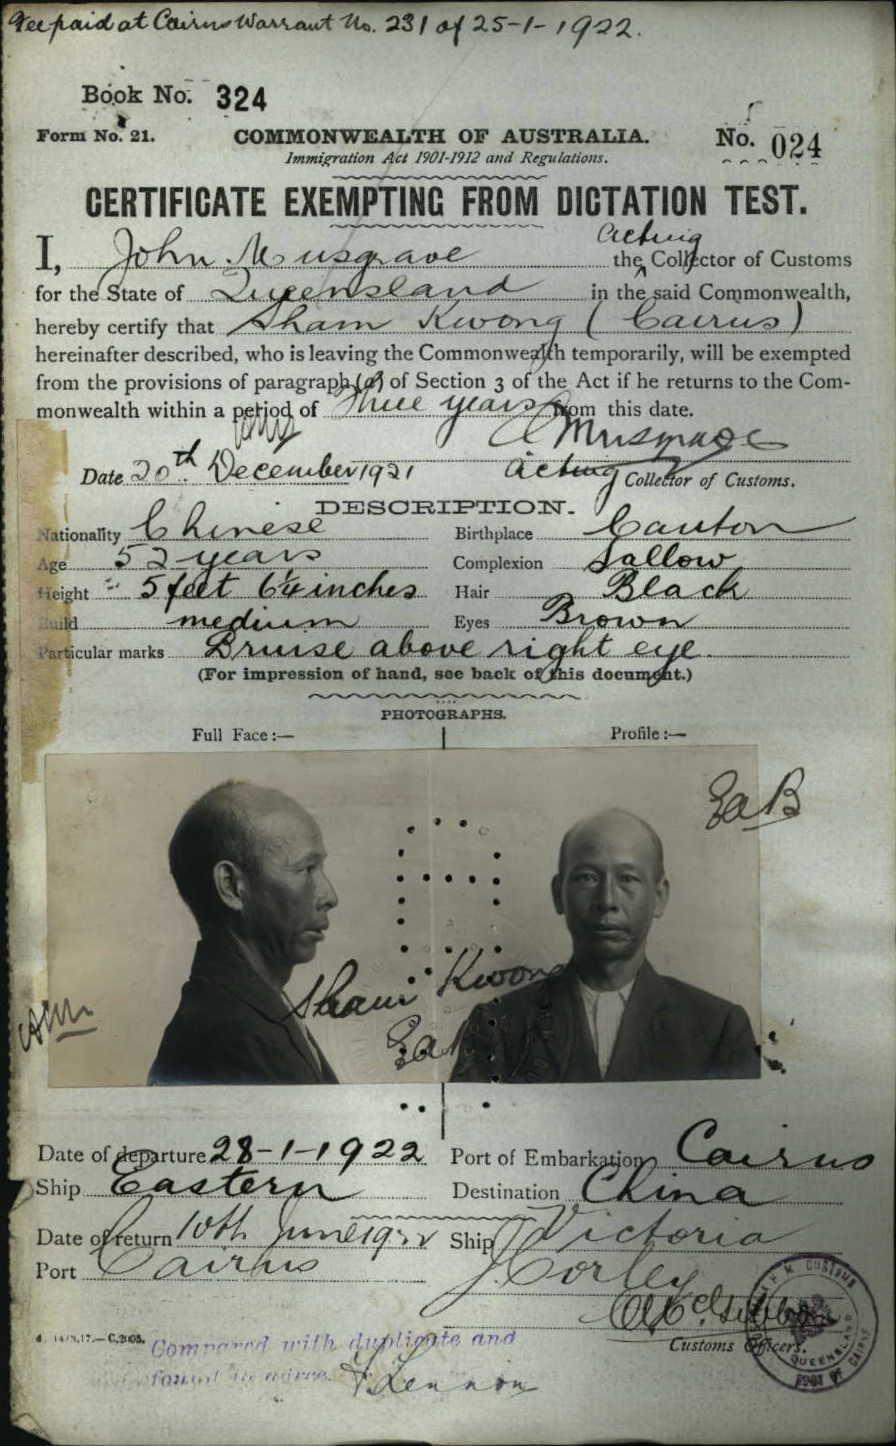 Fee paid at Cairns Warrant No. 231 of 25-1-1922.
Book No. 324
Form No. 21. COMMONWEALTH OF AUSTRALIA. No. 024
Immigration Act 1901-1912 and Regulations.
CERTIFICATE EXEMPTING FROM DICTATION TEST.
I, John Musgrave the Acting Collector of Customs
for the State of Queensland in the said Commonwealth,
hereby certify that Sham Kwong (Cairns)
hereinafter described, who is leaving the Commonwealth temporarily, will be exempted
from the provisions of paragraph (a) of Section 3 of the Act if he returns to the Com-
monwealth within a period of Three years from this date.
Musgrave
Date 20th December 1921 Acting Collector of Customs.
DESCRIPTION.
Nationality Chinese Birthplace Canton
Age 52 years Complexion Sallow
Height 5 feet 6¼ inches Hair Black
Build medium Eyes Brown
Particular marks Bruise above right eye.
(For impression of hand, see back of this document.)
PHOTOGRAPHS.
Full Face :— Profile :—
EaB
Sham Kwong
EaB
Date of departure 28-1-1922 Port of Embarkation Cairns
Ship Eastern Destination China
Date of return 10th June 1922 Ship Victoria
Port Cairns J. Corley
Customs Officers.
Compared with duplicate and
found to agree. F Lennon
H.M. CUSTOMS
QUEENSLAND